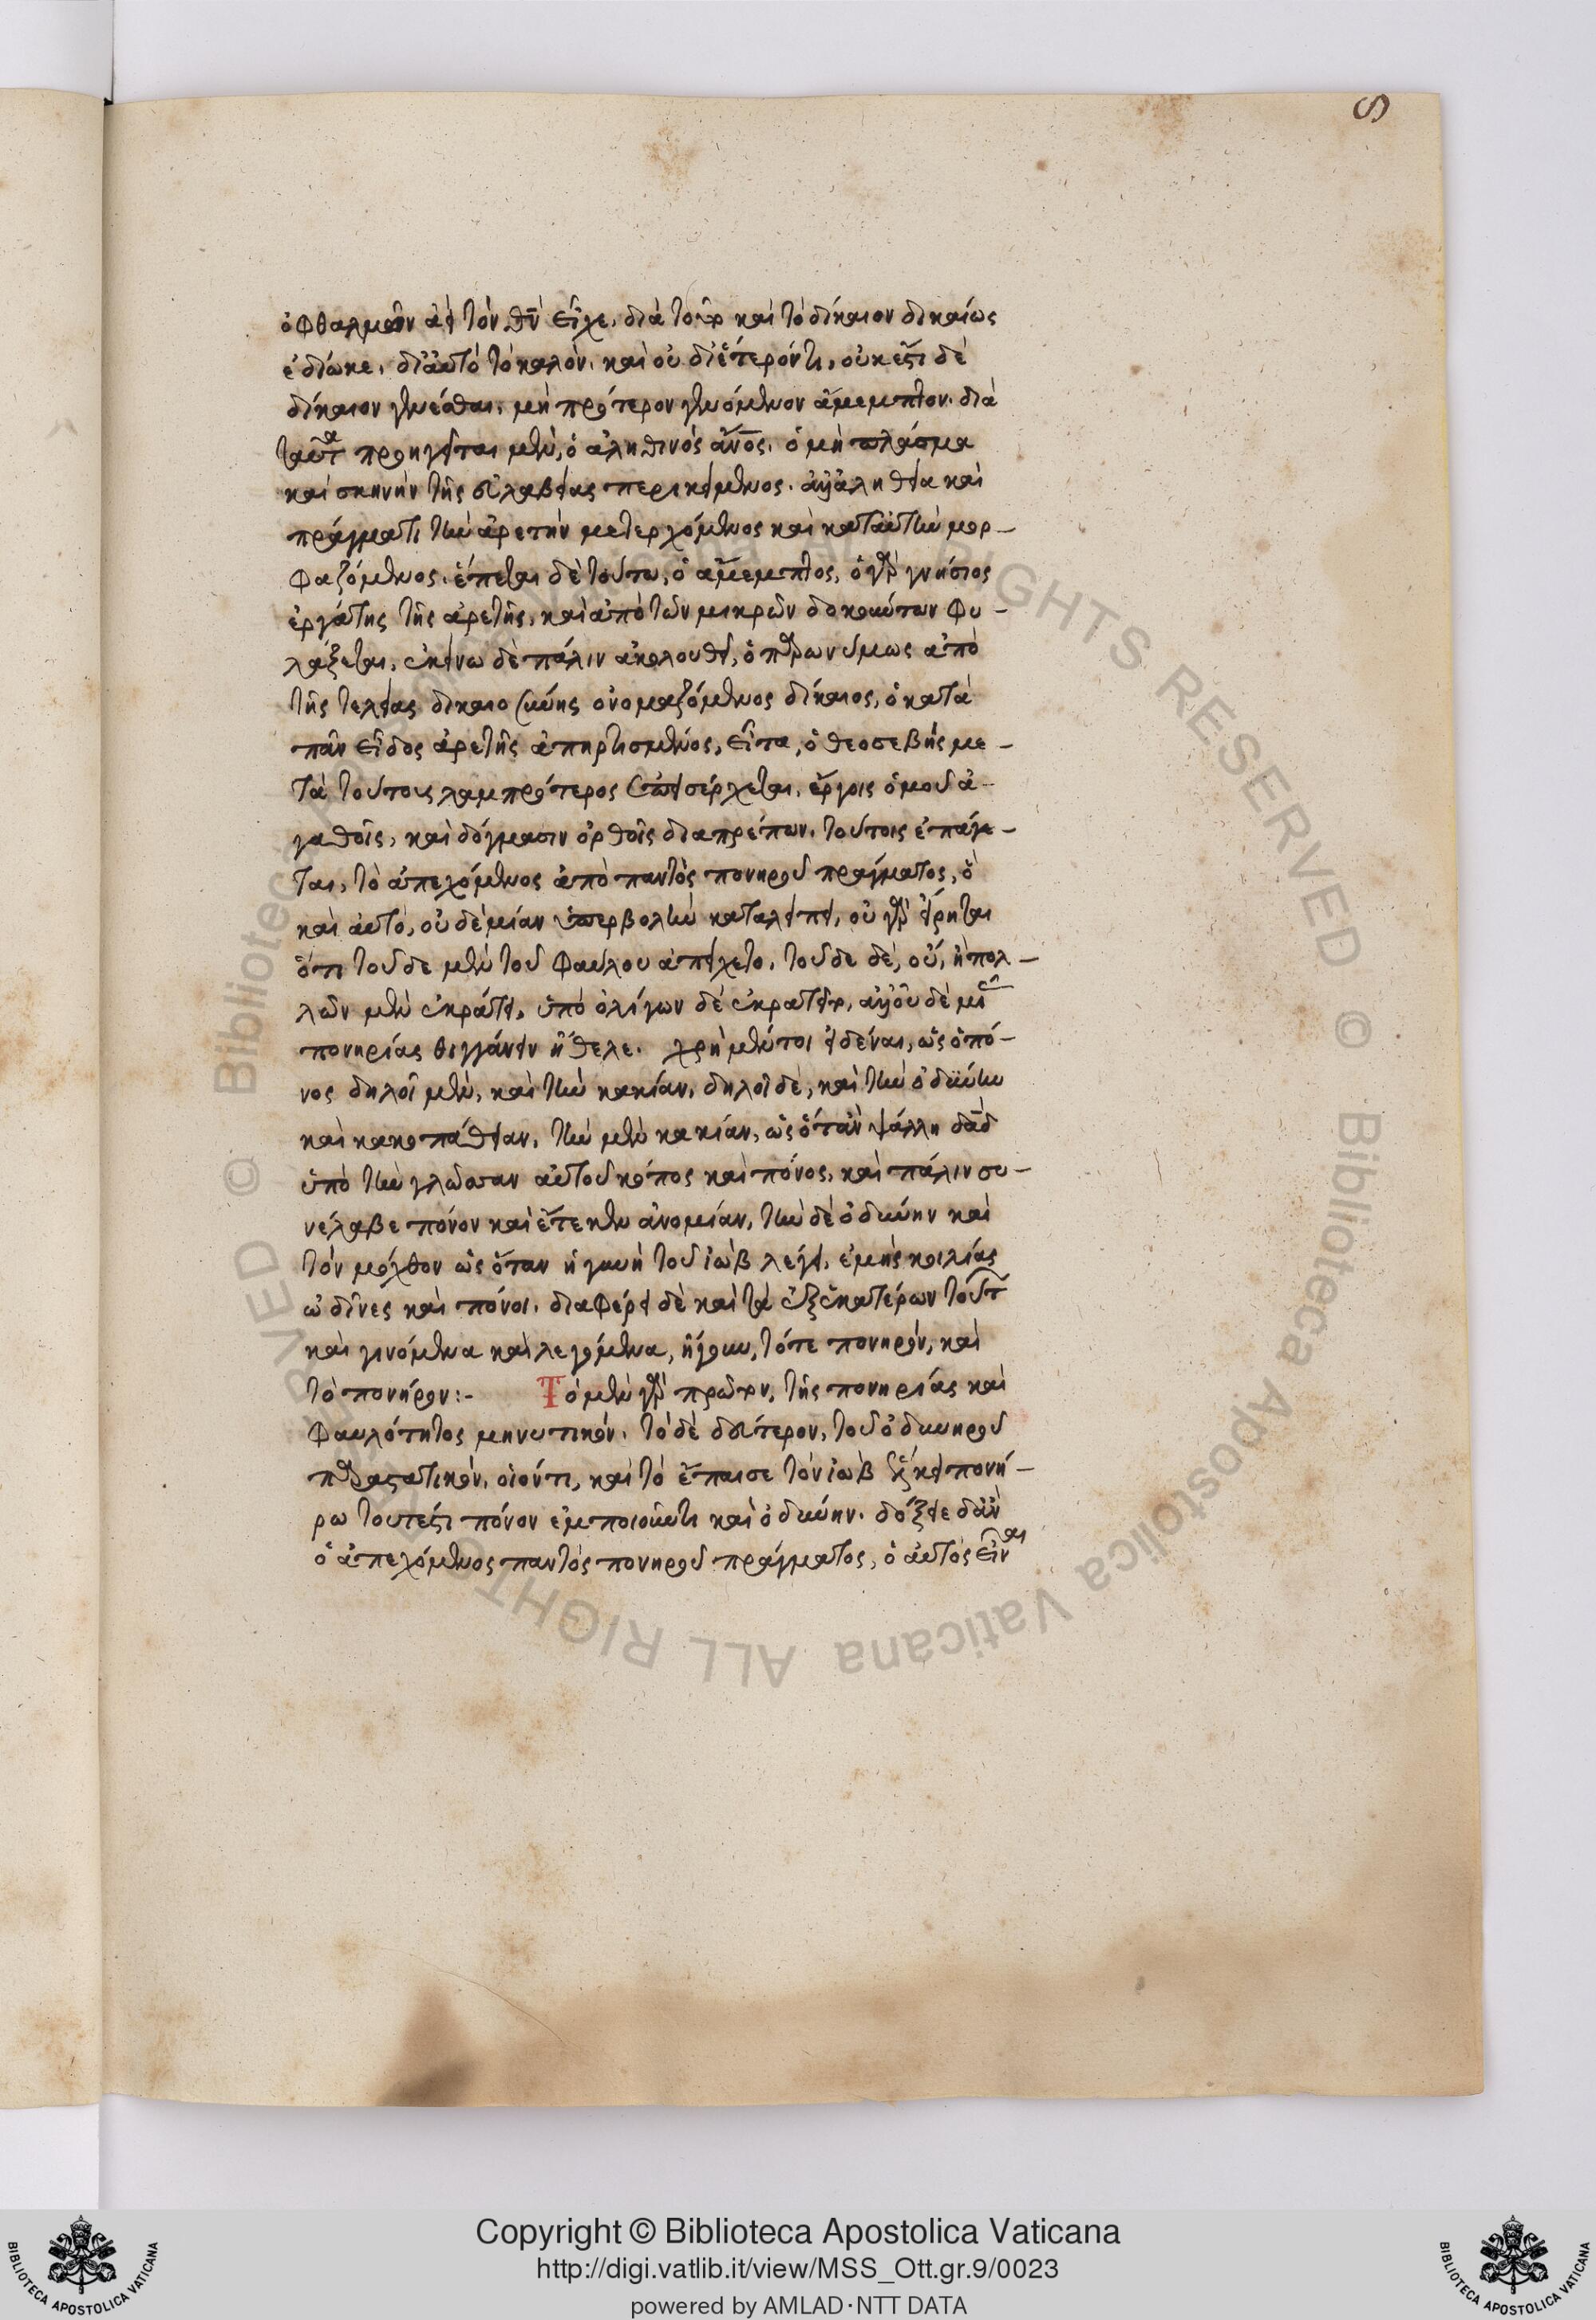 ὀφθαλμῶν ἀεὶ τὸν θν̄ εἶχε, διὰ τοῦτο καὶ τὸ δίκαιον δικαίως
ἐδίωκε, δι' αὐτὸ τὸ καλὸν, καὶ οὐ δι' ἕτερόν τι, οὐκ ἔστι δὲ
δίκαιον γενέσθαι, μὴ πρότερον γενόμενον ἄμεμπτον. διὰ
ταῦτα προηγεῖται μὲν, ὁ ἀληθινὸς ἄνος̄, ὁ μὴ πλάσμα
καὶ σκηνὴν τῆς εὐλαβείας περικείμενος. ἀλλ' ἀληθεία καὶ
πράγματι τὴν ἀρετὴν μετερχόμενος καὶ κατ' αὐτὴν μορ-
φαζόμενος. ἕπεται δὲ τούτω, ὁ ἄμεμπτος, ὁ γὰρ γνήσιος
ἐργάτης τῆς ἀρετῆς, καὶ ἀπὸ τῶν μικρῶν δοκούντων φυ-
λάξεται, ἐκείνω δὲ πάλιν ἀκολουθεῖ, ὁ παρωνύμως ἀπὸ
τῆς τελείας δικαιοσύνης ὀνομαζόμενος δίκαιος, ὁ κατὰ
πᾶν εἶδος ἀρετῆς ἀπηρτισμένος, εἶτα, ὁ θεοσεβὴς με-
τὰ τούτους λαμπρότερος συνεισέρχεται, ἔργοις ὁμοῦ ἀ-
γαθοῖς, καὶ δόγμασιν ὀρθοῖς διαπρέπων. τούτοις ἐπάγε-
ται, τὸ ἀπεχόμενος ἀπὸ παντὸς πονηροῦ πράγματος, ὃ
καὶ αὐτὸ, οὐδεμίαν ὑπερβολὴν καταλείπει, οὐ γὰρ εἴρηται
ὅτι τοῦδε μὲν τοῦ φαύλου ἀπείχετο, τοῦδε δὲ, οὔ, ἢ πολ-
λῶν μὲν ἐκράτει, ὑπὸ ὀλίγων δὲ ἐκρατεῖτο, ἀλλ' οὐδὲ μιᾶς
πονηρίας θιγγάνειν ἤθελε. χρὴ μέντοι εἰδέναι, ὡς ὁ πό-
νος δηλοῖ μὲν, καὶ τὴν κακίαν, δηλοῖ δὲ, καὶ τὴν ὀδύνην
καὶ κακοπάθειαν, τὴν μὲν κακίαν, ὡς ὅταν ψάλλη δᾱδ
ὑπὸ τὴν γλῶσσαν αὐτοῦ κόπος καὶ πόνος, καὶ πάλιν συ-
νέλαβε πόνον καὶ ἔτεκεν ἀνομίαν, τὴν δὲ ὀδύνην καὶ
τὸν μόχθον ὡς ὅταν ἡ γυνὴ τοῦ ἰὼβ λέγει, ἐμῆς κοιλίας
ὠδῖνες καὶ πόνοι. διαφέρει δὲ καὶ τὰ ἐξ ἑκατέρων τούτων
καὶ γινόμενα καὶ λεγόμενα, ἤγουν, τό τε πονηρὸν, καὶ
τὸ πονῆρον :- Τὸ μὲν γὰρ πρῶτον, τῆς πονηρίας καὶ
φαυλότητος μηνυτικόν. τὸ δὲ δεύτερον, τοῦ ὀδυνηροῦ
παραστατικόν, οἷόν τι, καὶ τὸ ἔπαισε τὸν ἰὼβ ἕλκει πονή-
ρω τουτέστι πόνον ἐμποιοῦντι καὶ ὀδύνην. δόξειε δ' ἂν
ὁ ἀπεχόμενος παντὸς πονηροῦ πράγματος, ὁ αὐτὸς εἶναι
Copyright © Biblioteca Apostolica Vaticana
http://digi.vatlib.it/view/MSS_Ott.gr.9/0023
powered by AMLAD·NTT DATA